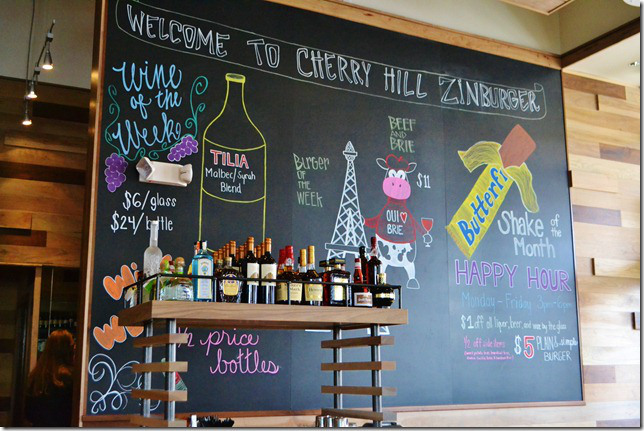 WELCOME TO CHERRY HILL ZINBURGER
Wine
of the
Week
TILIA
Malbec/Syrah
Blend
$6/glass
$24/bottle
BURGER
OF THE
WEEK
BEEF
AND
BRIE
$11
OUI
BRIE
Butterfi
Shake of
the
Month
HAPPY HOUR
Monday - Friday
$1 off all liquor, beer, and wine by the glass
1/2 off side items
$5 PLAIN & simple
BURGER
1/2 price
bottles